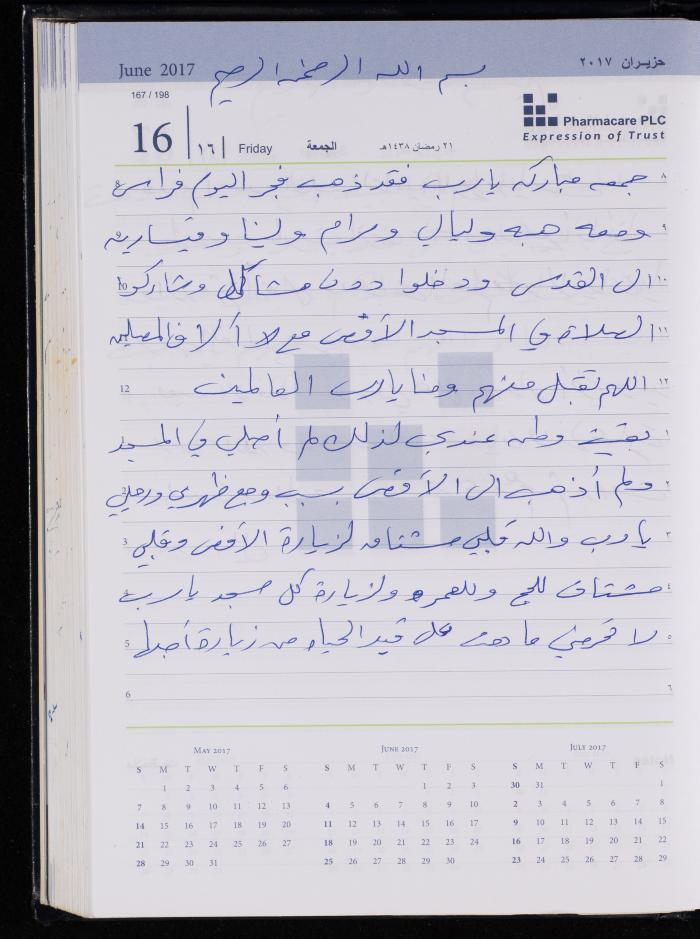 June 2017 بسم الله الرحمن الرحيم حزيران ٢٠١٧
167 / 198
16 ١٦ Friday الجمعة ٢١ رمضان ١٤٣٨هـ
Pharmacare PLC
Expression of Trust
٨ جمعه مباركه يارب فقد ذهب فجر اليوم فراس
٩ ومعه هبه وليال ومرام ولينا
١٠ ال القدس ودخلوا دون مشاكل وشاركوا 10
١١ الصلاة في المسجد الأقصى مع المصليين
١٢ اللهم تقبل منهم ومنا يارب العالمين 12
١ بقيت وطن عندي لذلك لم أصلي في المسجد
٢ ولم أذهب ال الأقصى بسبب وجع ظهري ورجلي
٣ يارب والله قلبي مشتاق لزيارة الأقصى وقلبي 3
٤ مشتاق للحج وللعمره ولزيارة كل مسجد يارب
٥ لا تحرمني ما دمت على قيد الحياه من زيارة أجملها 5
٦ 6
May 2017
S M T W T F S
1 2 3 4 5 6
7 8 9 10 11 12 13
14 15 16 17 18 19 20
21 22 23 24 25 26 27
28 29 30 31
June 2017
S M T W T F S
1 2 3
4 5 6 7 8 9 10
11 12 13 14 15 16 17
18 19 20 21 22 23 24
25 26 27 28 29 30
July 2017
S M T W T F S
30 31 1
2 3 4 5 6 7 8
9 10 11 12 13 14 15
16 17 18 19 20 21 22
23 24 25 26 27 28 29